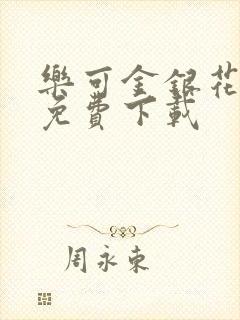 樂可金銀花
免費下載
周永東